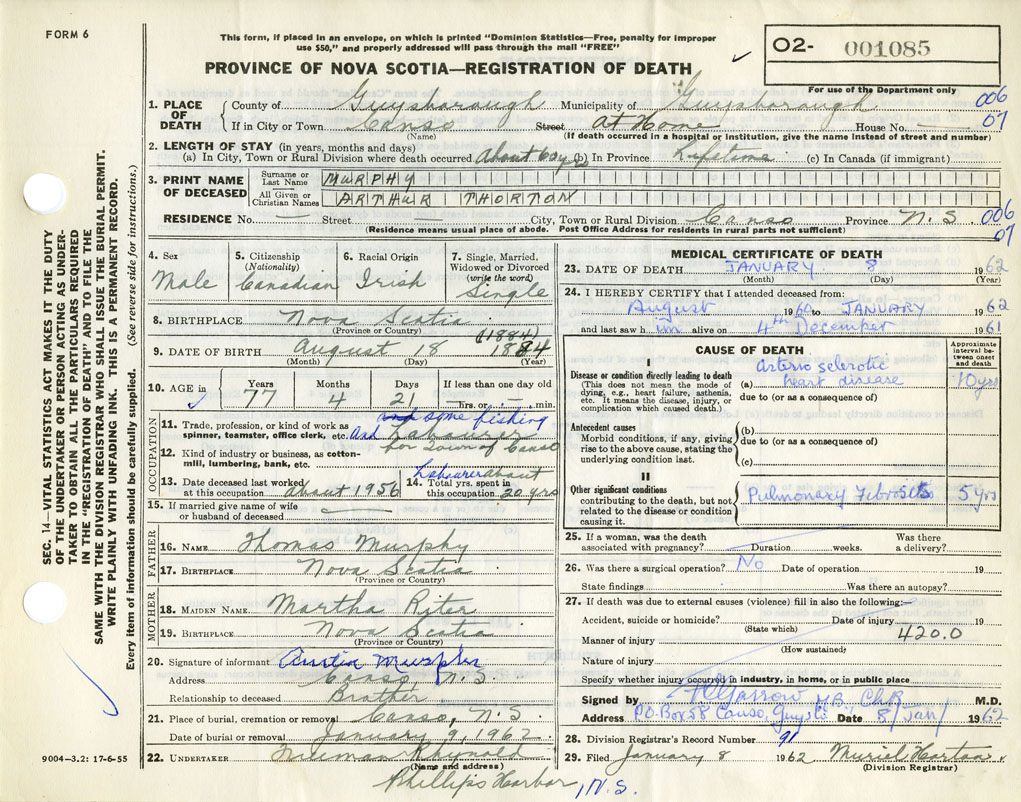 FORM 6
This form, if placed in an envelope, on which is printed "Dominion Statistics—Free, penalty for improper
use $50," and properly addressed will pass through the mail "FREE"
PROVINCE OF NOVA SCOTIA—REGISTRATION OF DEATH
O2- 001085
For use of the Department only
1. PLACE OF DEATH
County of Guysborough Municipality of Guysborough 006
If in City or Town Canso Street At Home House No. — 07
(Name) (If death occurred in a hospital or institution, give the name instead of street and number)
2. LENGTH OF STAY (in years, months and days)
(a) In City, Town or Rural Division where death occurred About 60 yrs (b) In Province Lifetime (c) In Canada (if immigrant)
3. PRINT NAME OF DECEASED
Surname or Last Name MURPHY
All Given or Christian Names ARTHUR THORTON
RESIDENCE No. — Street — City, Town or Rural Division Canso Province N.S 006
07
(Residence means usual place of abode. Post Office Address for residents in rural parts not sufficient)
4. Sex Male
5. Citizenship (Nationality) Canadian
6. Racial Origin Irish
7. Single, Married, Widowed or Divorced (write the word) Single
8. BIRTHPLACE Nova Scotia
(Province or Country)
(1884)
9. DATE OF BIRTH August 18 1884
(Month) (Day) (Year)
10. AGE in Years 77 Months 4 Days 21 If less than one day old — hrs. or — min.
OCCUPATION
and some fishing
11. Trade, profession, or kind of work as spinner, teamster, office clerk, etc. And Labourer
for Town of Canso
12. Kind of industry or business, as cotton-mill, lumbering, bank, etc.
13. Date deceased last worked at this occupation about 1956
14. Total yrs. spent in this occupation Labourer about 20 yrs
15. If married give name of wife or husband of deceased —
FATHER
16. NAME Thomas Murphy
17. BIRTHPLACE Nova Scotia
(Province or Country)
MOTHER
18. MAIDEN NAME Martha Riter
19. BIRTHPLACE Nova Scotia
(Province or Country)
20. Signature of informant Austin Murphy
Address Canso, N.S
Relationship to deceased Brother
21. Place of burial, cremation or removal Canso, N.S
Date of burial or removal January 9, 1962
22. UNDERTAKER Freeman Rhynold
(Name and address)
Phillips Harbor, N.S.
MEDICAL CERTIFICATE OF DEATH
23. DATE OF DEATH JANUARY 8 1962
(Month) (Day) (Year)
24. I HEREBY CERTIFY that I attended deceased from:
August 1960 to JANUARY 1962
and last saw him alive on 4th December 1961
CAUSE OF DEATH
Approximate interval between onset and death
I
Disease or condition directly leading to death
(This does not mean the mode of dying, e.g., heart failure, asthenia, etc. It means the disease, injury, or complication which caused death.)
(a) Arterio sclerotic heart disease 10 yrs
due to (or as a consequence of)
Antecedent causes
Morbid conditions, if any, giving rise to the above cause, stating the underlying condition last.
(b)
due to (or as a consequence of)
(c)
II
Other significant conditions
contributing to the death, but not related to the disease or condition causing it.
Pulmonary Febrosis 5 yrs
25. If a woman, was the death associated with pregnancy? Duration weeks. Was there a delivery?
26. Was there a surgical operation? No Date of operation 19
State findings Was there an autopsy?
27. If death was due to external causes (violence) fill in also the following:—
Accident, suicide or homicide? Date of injury 19
(State which)
Manner of injury 420.0
(How sustained)
Nature of injury
Specify whether injury occurred in industry, in home, or in public place
Signed by M.B. Ch.B M.D.
Address P.O. Box 58 Canso, Guys Co Date 8/Jan/ 1962
28. Division Registrar's Record Number 91
29. Filed January 8 1962 Muriel
(Division Registrar)
SEC. 14—VITAL STATISTICS ACT MAKES IT THE DUTY
OF THE UNDERTAKER OR PERSON ACTING AS UNDER-
TAKER TO OBTAIN ALL THE PARTICULARS REQUIRED
IN THE "REGISTRATION OF DEATH" AND TO FILE THE
SAME WITH THE DIVISION REGISTRAR WHO SHALL ISSUE THE BURIAL PERMIT.
WRITE PLAINLY WITH UNFADING INK. THIS IS A PERMANENT RECORD.
Every item of information should be carefully supplied. (See reverse side for instructions.)
9004—3.2: 17-6-55